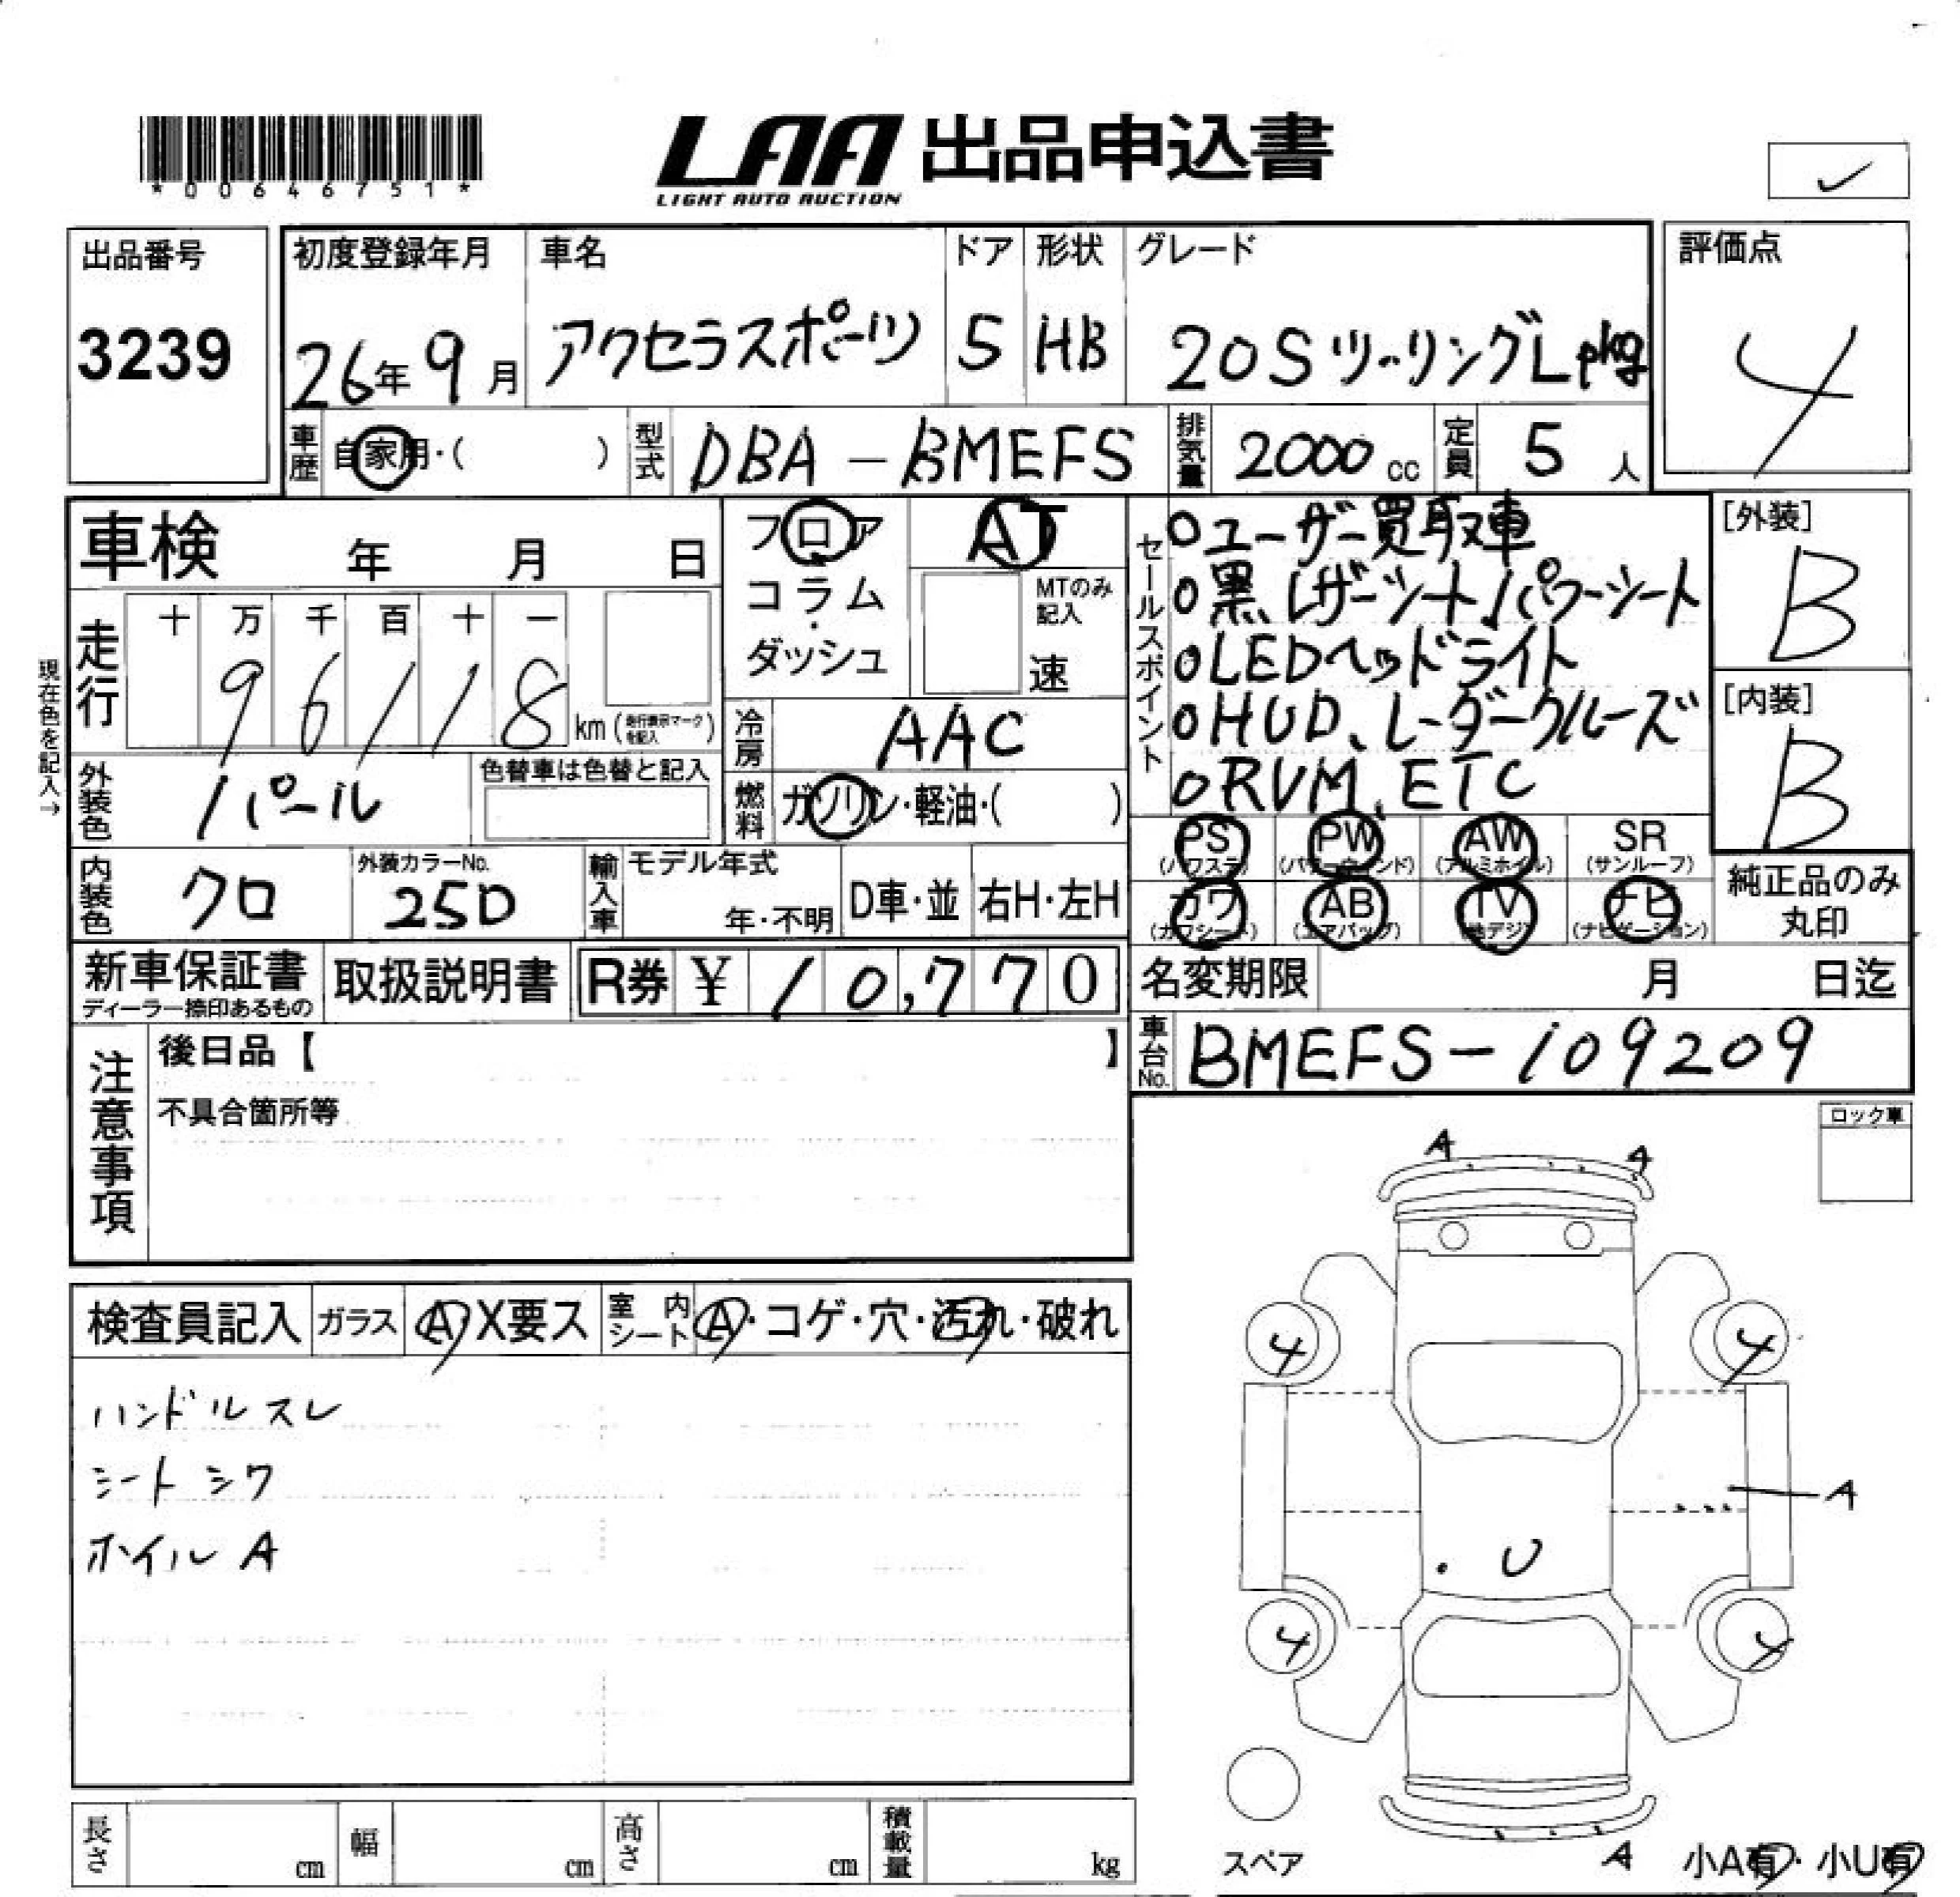 *00646751*
LAA 出品申込書
LIGHT AUTO AUCTION
✓
出品番号
3239
初度登録年月
26年9月
車名
アクセラスポーツ
ドア
5
形状
HB
グレード
20SツーリングLpkg
評価点
4
車歴
自家用・( )
型式
DBA-BMEFS
排気量
2000cc
定員
5人
車検 年 月 日
フロア
コラム
・
ダッシュ
AT
MTのみ
記入
速
セールスポイント
○ユーザー買取車
○黒レザーシート、パワーシート
○LEDヘッドライト
○HUD、レーダークルーズ
○RVM、ETC
[外装]
B
[内装]
B
現在色を記入→
走行
十 万 千 百 十 一
9 6 1 1 8 km (走行表示マークを記入)
冷房
AAC
外装色
パール
色替車は色替と記入
燃料
ガソリン・軽油・( )
PS
(パワステ)
PW
(パワーウィンド)
AW
(アルミホイル)
SR
(サンルーフ)
カワ
(カワシート)
AB
(エアバッグ)
TV
(地デジ)
ナビ
(ナビゲーション)
純正品のみ
丸印
内装色
クロ
外装カラーNo.
25D
輸入車
モデル年式
年・不明
D車・並
右H・左H
新車保証書
ディーラー捺印あるもの
取扱説明書
R券 ¥ 10,770
名変期限 月 日迄
車台No.
BMEFS-109209
注意事項
後日品【 】
不具合箇所等
ロック車
検査員記入
ガラス
A・X要ス
室内
シート
A・コゲ・穴・汚れ・破れ
ハンドルスレ
シートシワ
ホイルA
A A
4 4
A
U
4 4
スペア
A
小A有・小U有
長さ cm
幅 cm
高さ cm
積載量 kg